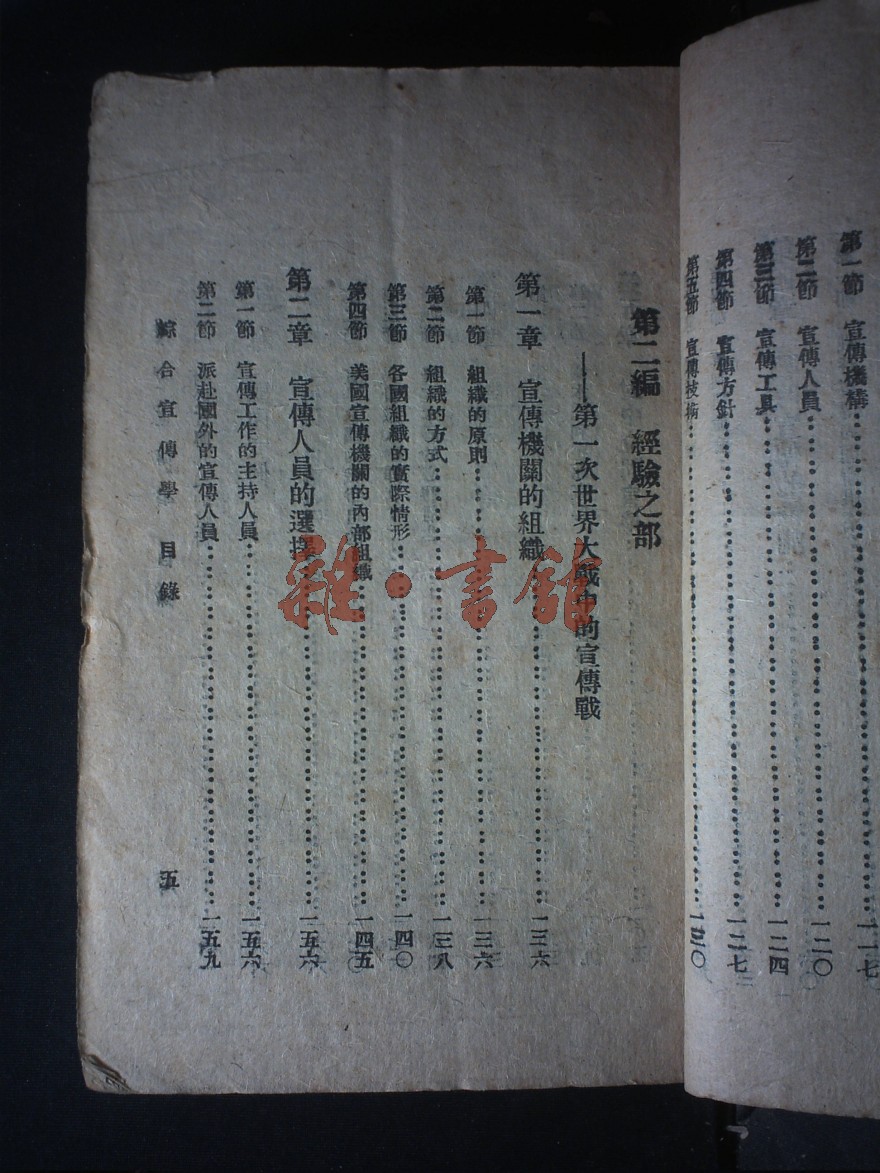 第一節 宣傳機構 一一七
第二節 宣傳人員 一二〇
第三節 宣傳工具 一二四
第四節 宣傳方針 一二七
第五節 宣傳技術 一三〇
第二編 經驗之部
——第一次世界大戰中的宣傳戰
第一章 宣傳機關的組織 一三六
第一節 組織的原則 一三六
第二節 組織的方式 一三八
第三節 各國組織的實際情形 一四〇
第四節 美國宣傳機關的內部組織 一四五
第二章 宣傳人員的選擇 一五六
第一節 宣傳工作的主持人員 一五六
第二節 派赴國外的宣傳人員 一五九
綜合宣傳學 目錄 五
雜·書舘